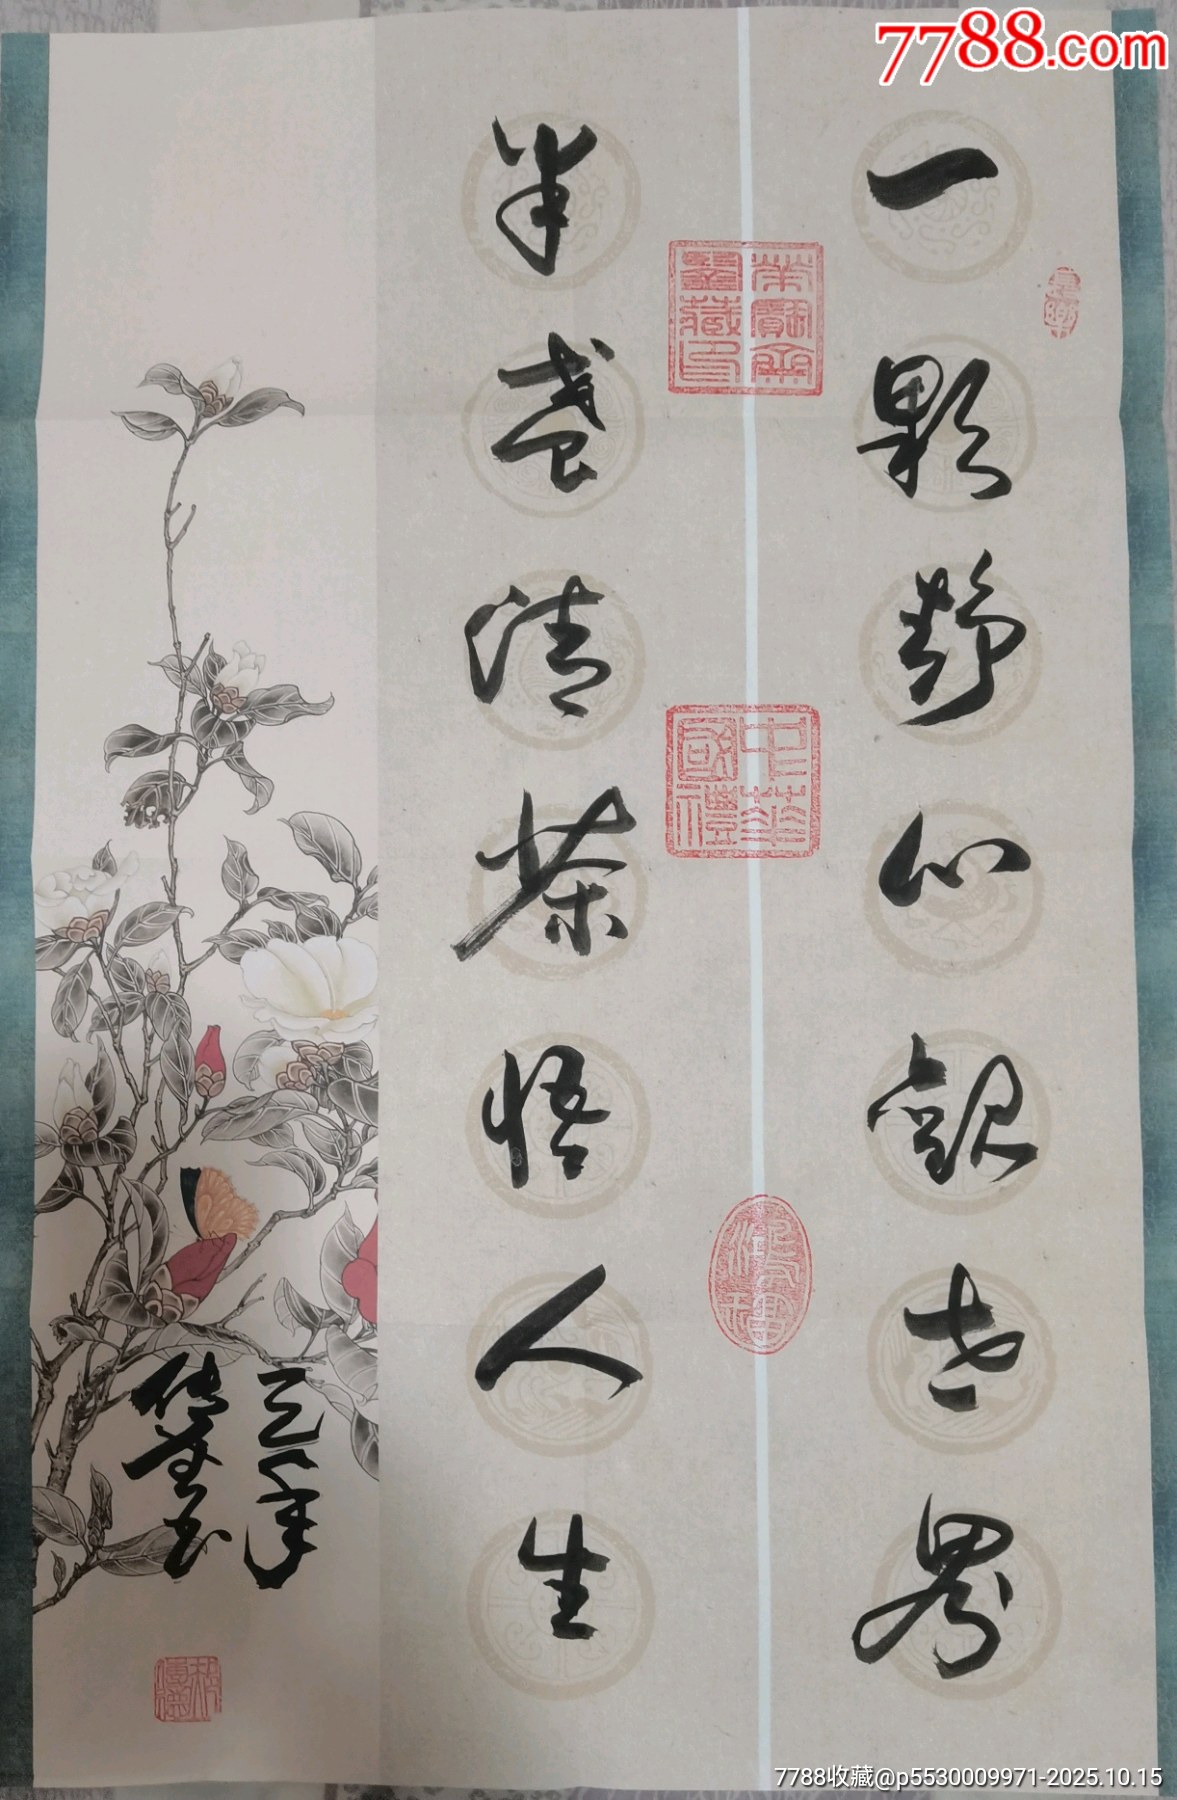 7788.com
一颗静心觀世界
半盏清茶悟人生
榮寶齋
藏印
中華
國禮
7788收藏@p5530009971-2025.10.15